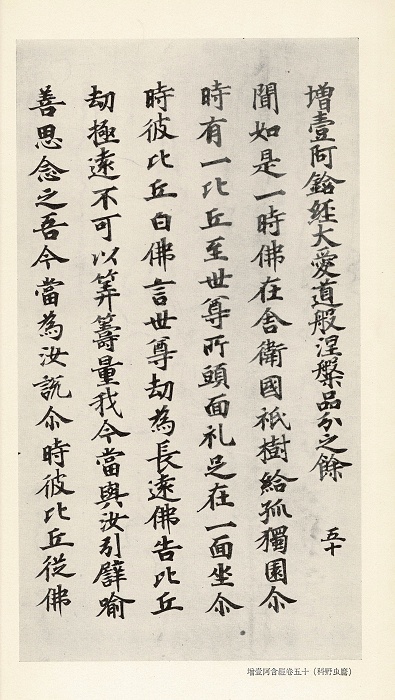 増壹阿鋡経大愛道般涅槃品分之餘 五十
聞如是一時佛在舍衛國祇樹給孤獨園尒
時有一比丘至世尊所頭面礼足在一面坐尒
時彼比丘白佛言世尊劫為長遠佛告比丘
劫極遠不可以筭籌量我今當與汝引譬喻
善思念之吾今當為汝説尒時彼比丘従佛
増壹阿含經卷五十（科野虫麿）